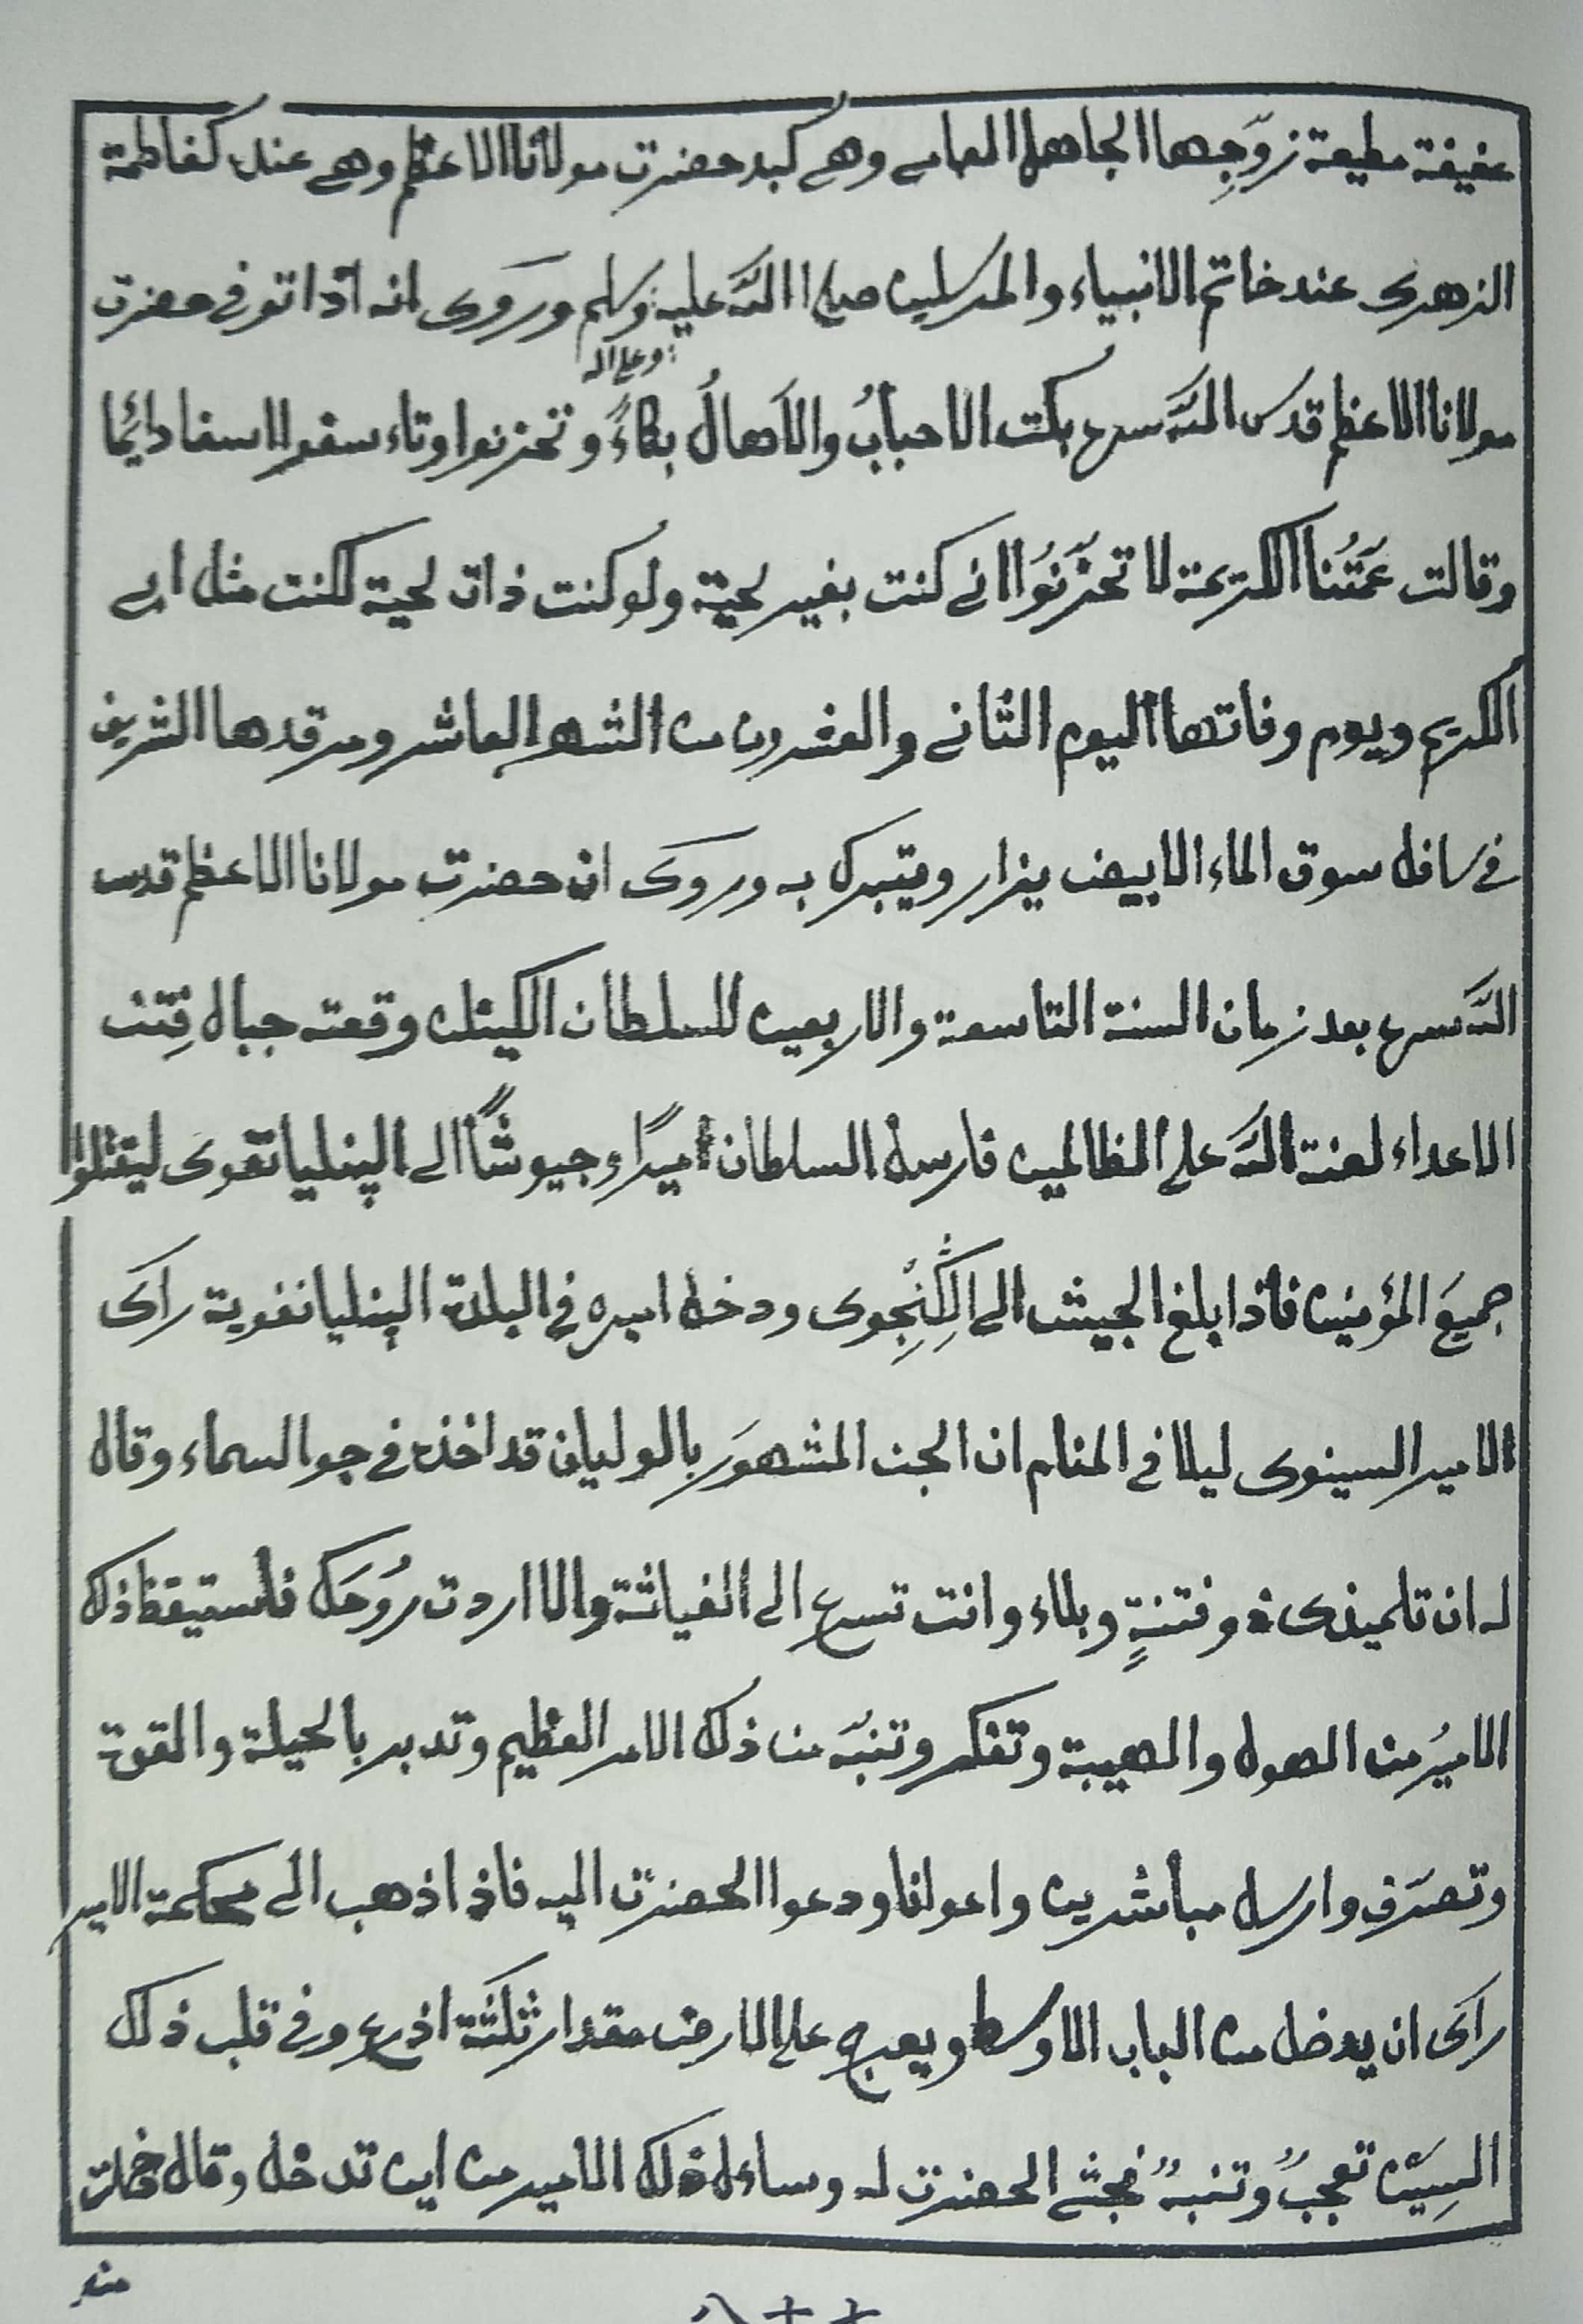 عفيفة مطيعة زوّجها الجاهل العامى وهى كبد حضرت مولانا الاعظم وهى عنده كفاطمة
الزهرى عند خاتم الانبياء والمرسلين صلى الله عليه وسلم وروى انه اذا توفى حضرت
وعلى اله
مولانا الاعظم قدس الله سره بكت الاحبابُ والاَهالُ بكاءً وتحزنوا وتاءسفوا لاسفا دائِما
وقالت عَمَّتُنا الكريمة لا تحزّنوُا انى كنت بغير لحية ولو كنت ذات لحية لكنت مثل ابى
الكريم ويوم وفاتها اليوم الثانى والعشرون من الشهر العاشر ومرقدها الشريف
فى سافل سوق الماء الابيض يزار ويتبرك به وروى ان حضرت مولانا الاعظم قدس
الله سره بعد زمان السنة التاسعة والاربعين للسلطان الكينلن وقعته جبال فِتن
الاعداء لعنة الله على الظالمين فارسل السلطان اميراً وجيوشاً الى الپنليانغوى ليقتلوا
جميعَ المؤمنين فاذا بلغ الجيش الى الكِنْجوى ودخل اميره فى البلدة الپنليانغوية راَى
الامير السينوى ليلا فى المنام ان الجن المشهور بالوليان قد اخذه فى جو السماء وقال
له ان تلميذى فى فتنةٍ وبلاء وانت تسرع الى الغياثة والا اردت رُوحَك فاستيقظ ذلك
الاميرُ من الهول والهيبة وتفكر وتنبّه من ذلك الامر العظيم وتدبر بالحيلة والقوة
وتصرَف وارسل مباشرين واعوانا ودعوا الحضرت اليه فاذا ذهب الى محكمة الامير
راَى ان يدخل من الباب الاوسط ويعرج على الارض مقدار ثلثة اذرع وفى قلب ذلك
السِيّن تعجبٌ وتنبهٌ فجثى الحضرت له وساءل ذلك الامير من اين تدخل وقال دخلت
منه